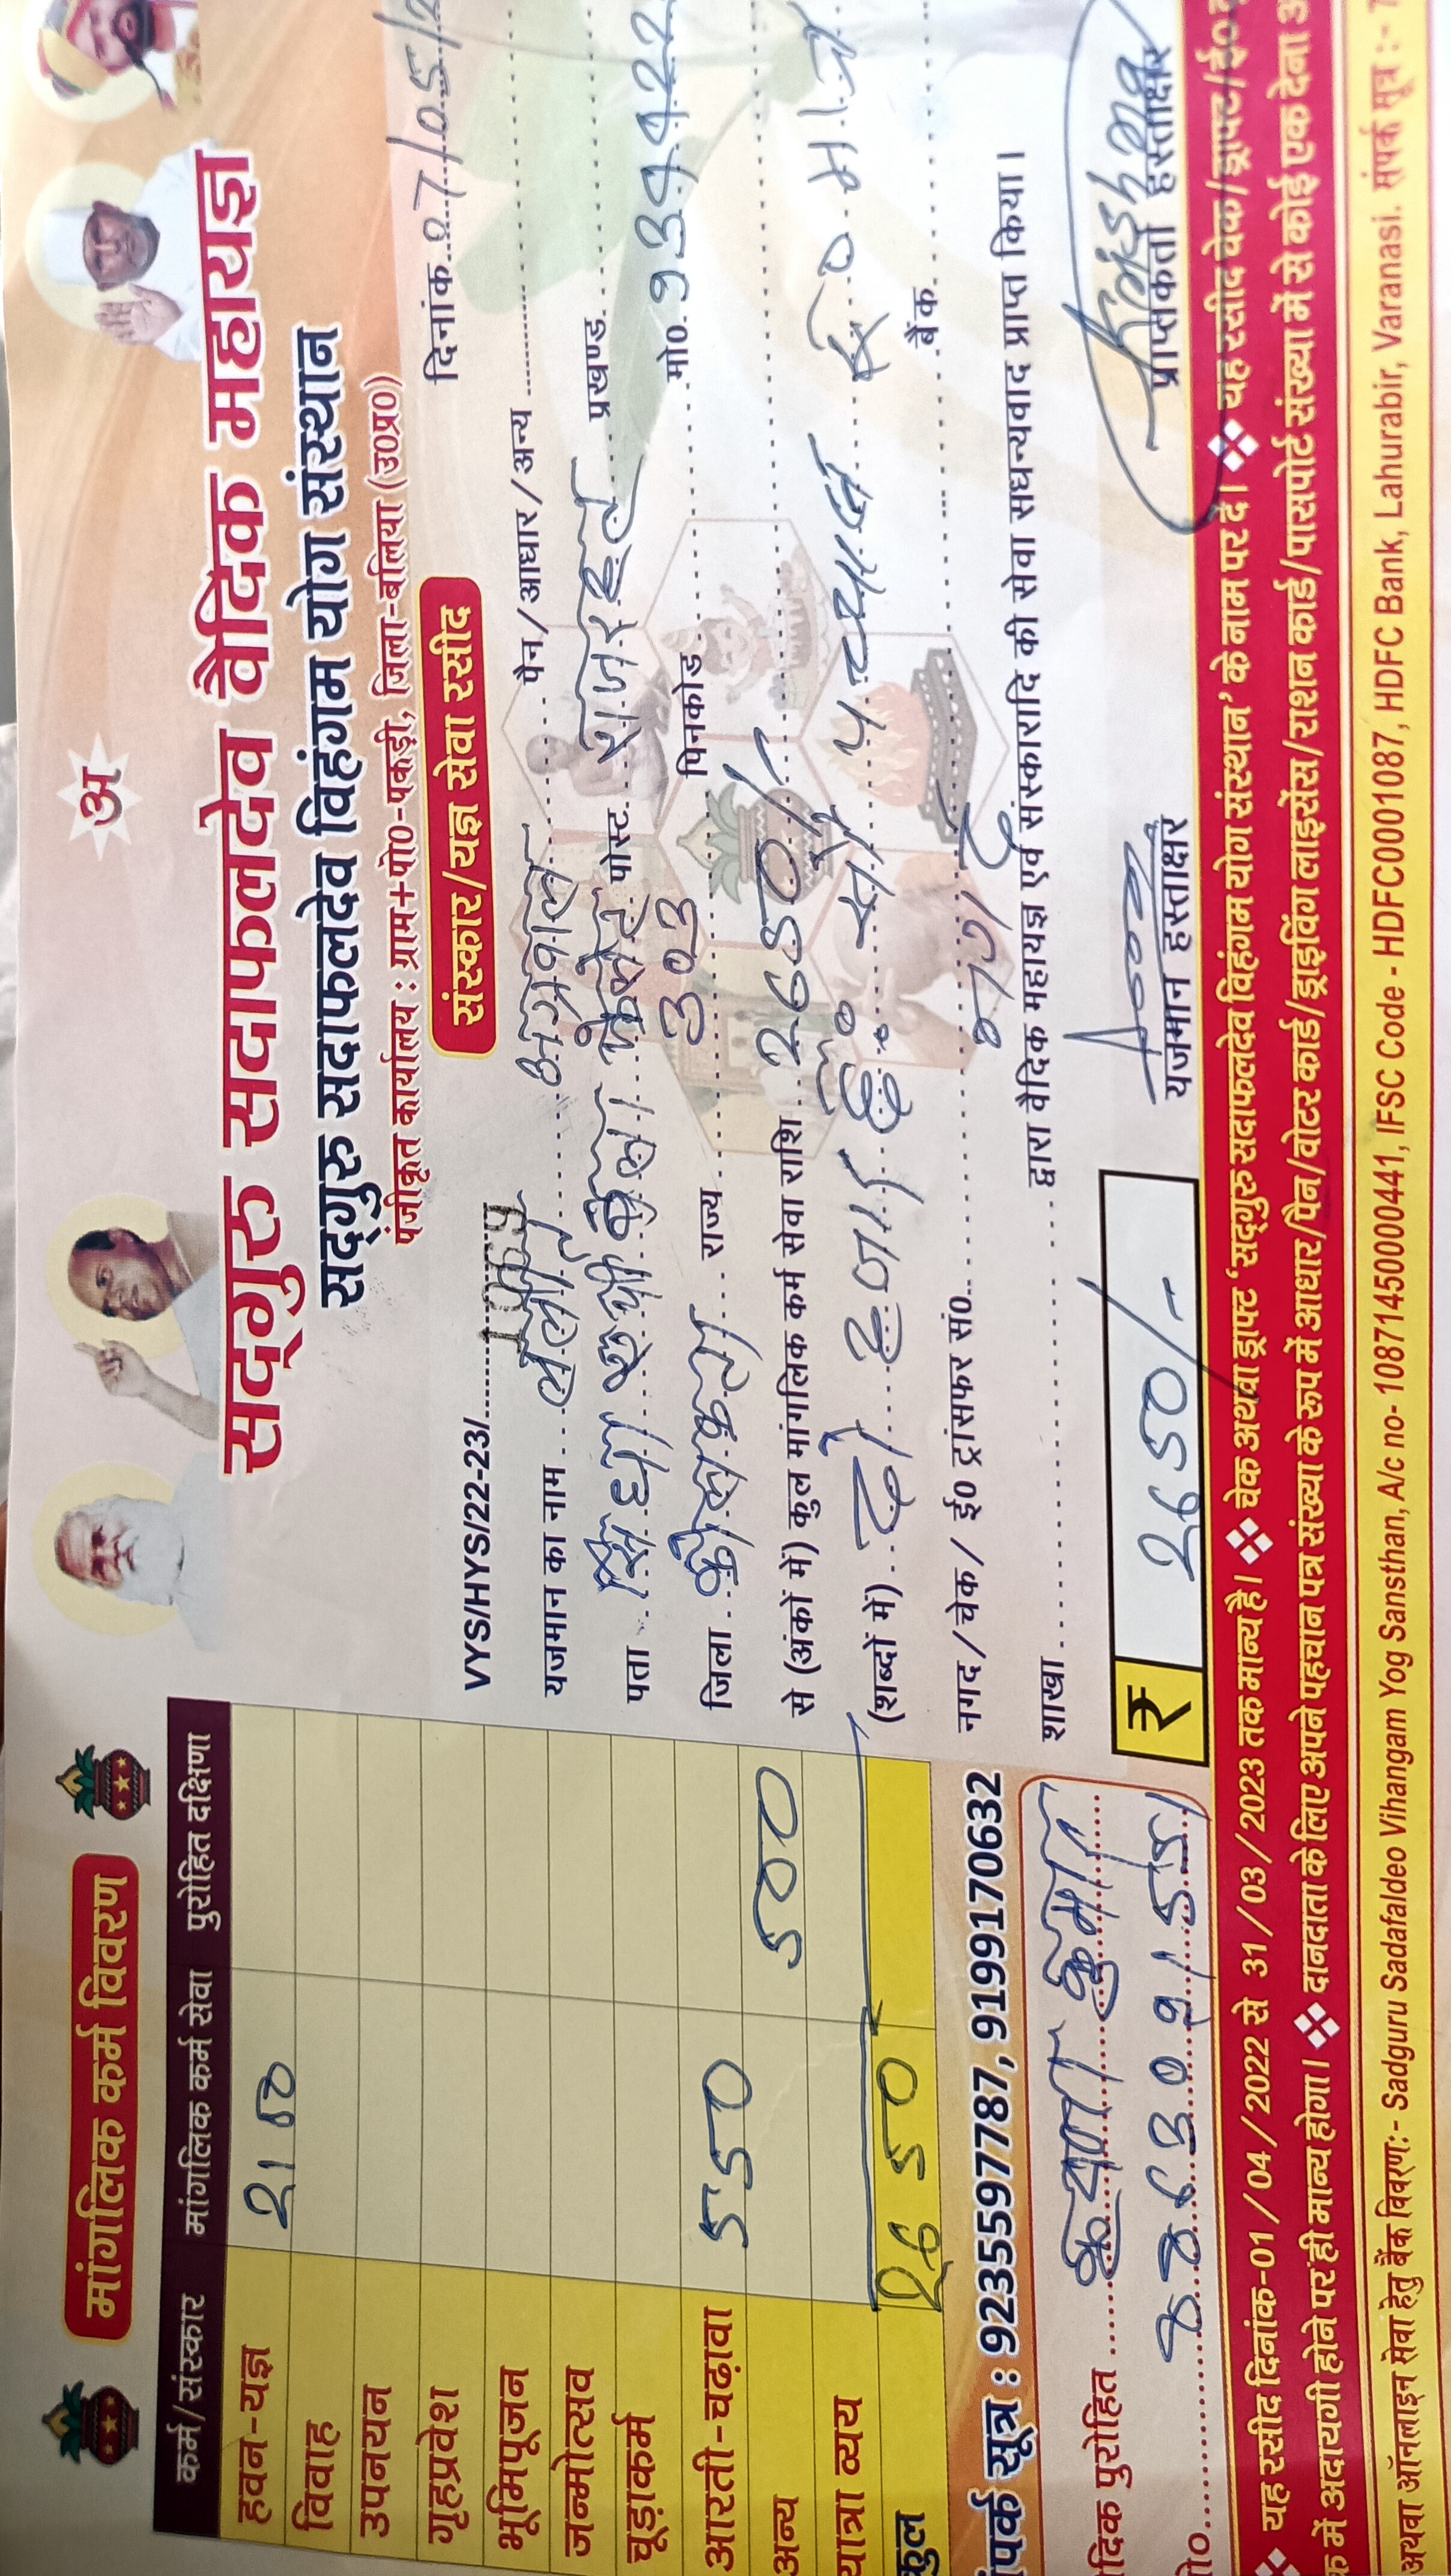 मांगलिक कर्म विवरण
कर्म/संस्कार मांगलिक कर्म सेवा पुरोहित दक्षिणा
हवन-यज्ञ 2100
विवाह
उपनयन
गृहप्रवेश
भूमिपूजन
जन्मोत्सव
चूड़ाकर्म
आरती-चढ़ावा 550
अन्य 500
यात्रा व्यय
कुल 2650
संपर्क सूत्र : 9235597787, 9199170632
पुरोहित कुमार
अ
सद्गुरु सदाफलदेव वैदिक महायज्ञ
सद्गुरु सदाफलदेव विहंगम योग संस्थान
पंजीकृत कार्यालय : ग्राम+पो०-पकड़ी, जिला-बलिया (उ०प्र०)
संस्कार/यज्ञ सेवा रसीद
दिनांक 07/05/2
VYS/HYS/22-23/ 1069
यजमान का नाम अग्रवाल पैन/आधार/अन्य
पता पोस्ट राजरहाट प्रखण्ड
जिला राज्य पिनकोड मो० 9339922
से (अंकों में) कुल मांगलिक कर्म सेवा राशि 2650/-
(शब्दों में) दो हजार छः सौ पचास रु० मात्र
नगद/चेक/ई० ट्रांसफर सं० बैंक
शाखा द्वारा वैदिक महायज्ञ एवं संस्कारादि की सेवा सधन्यवाद प्राप्त किया।
₹ 2650/-
यजमान हस्ताक्षर
प्राप्तकर्ता हस्ताक्षर
❖ यह रसीद दिनांक-01/04/2022 से 31/03/2023 तक मान्य है। ❖ चेक अथवा ड्राफ्ट 'सद्गुरु सदाफलदेव विहंगम योग संस्थान' के नाम पर दें। ❖ यह रसीद चेक/ड्राफ्ट/ई०
में अदायगी होने पर ही मान्य होगा। ❖ दानदाता के लिए अपने पहचान पत्र संख्या के रूप में आधार/पैन/वोटर कार्ड/ड्राईविंग लाइसेंस/राशन कार्ड/पासपोर्ट संख्या में से कोई एक देना
अथवा ऑनलाइन सेवा हेतु बैंक विवरण:- Sadguru Sadafaldeo Vihangam Yog Sansthan, A/c no- 10871450000441, IFSC Code - HDFC0001087, HDFC Bank, Lahurabir, Varanasi. संपर्क सूत्र :- 7